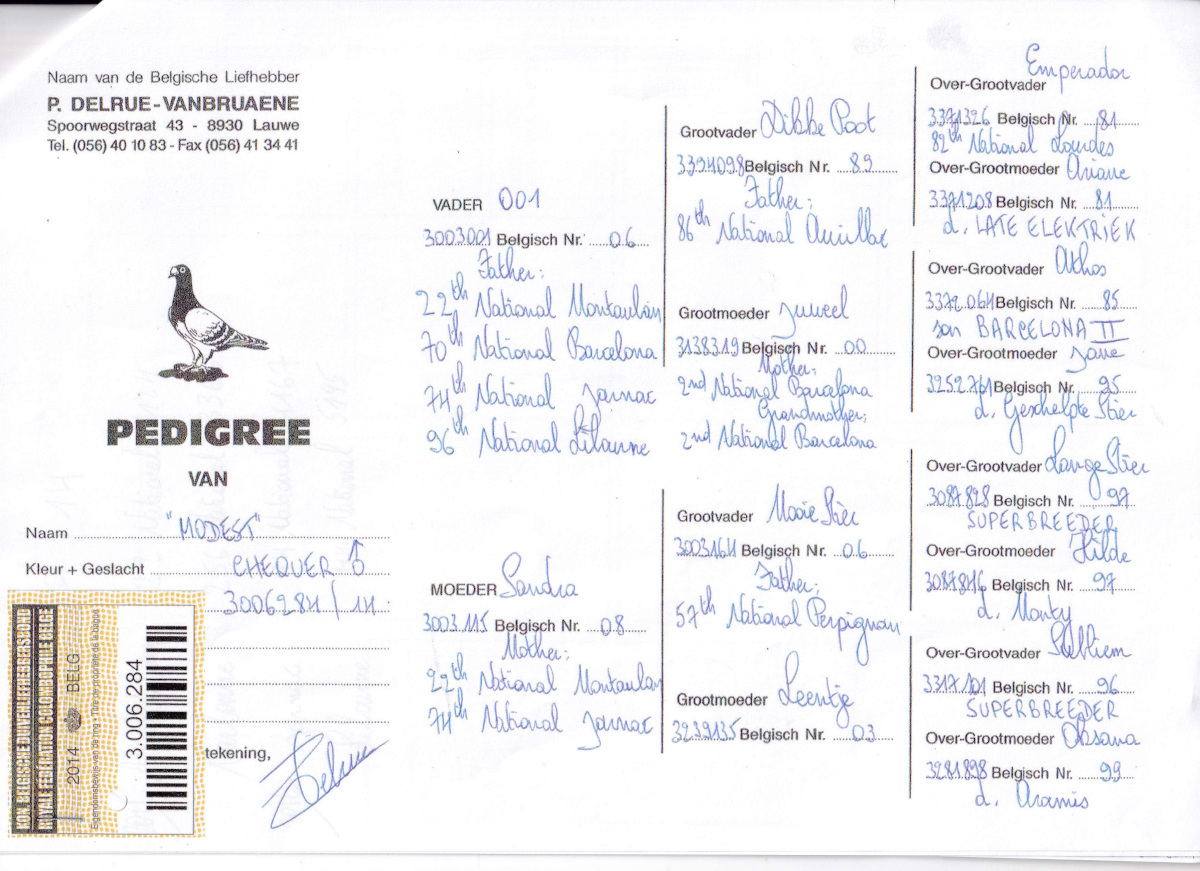 Naam van de Belgische Liefhebber
P. DELRUE-VANBRUAENE
Spoorwegstraat 43 - 8930 Lauwe
Tel. (056) 40 10 83 - Fax (056) 41 34 41
PEDIGREE
VAN
Naam "MODEST"
Kleur + Geslacht CHEQUER
3006284 / 14
KON. BELGISCHE DUIVENLIEFHEBBERSBOND
ROYALE FEDERATION COLOMBOPHILE BELGE
2014 BELG
Eigendomsbewijs van de ring - Titre de propriété de la bague
3.006.284
tekening,
Delrue
VADER 001
3003001 Belgisch Nr. 06
Father:
22th National Montauban
70th National Barcelona
74th National Jarnac
96th National Libourne
MOEDER Sandra
3003115 Belgisch Nr. 08
Mother:
22th National Montauban
74th National Jarnac
Grootvader Dikke Poot
3394098 Belgisch Nr. 89
Father:
86th National Aurillac
Grootmoeder Juweel
3138319 Belgisch Nr. 00
Mother:
2nd National Barcelona
Grandmother:
2nd National Barcelona
Grootvader Mooie Stier
3003164 Belgisch Nr. 06
Father:
57th National Perpignan
Grootmoeder Leentje
3239135 Belgisch Nr. 03
Emperador
Over-Grootvader
3371326 Belgisch Nr. 81
82th National Lourdes
Over-Grootmoeder Ariane
3371208 Belgisch Nr. 81
d. LATE ELEKTRIEK
Over-Grootvader Athos
3372064 Belgisch Nr. 85
son BARCELONA II
Over-Grootmoeder Jane
3252761 Belgisch Nr. 95
d. Geschelpte Stier
Over-Grootvader Lange Stier
3087828 Belgisch Nr. 97
SUPERBREEDER
Over-Grootmoeder Hilde
3087816 Belgisch Nr. 97
d. Monty
Over-Grootvader
3317101 Belgisch Nr. 96
SUPERBREEDER
Over-Grootmoeder Oksana
3281898 Belgisch Nr. 99
d. Aramis